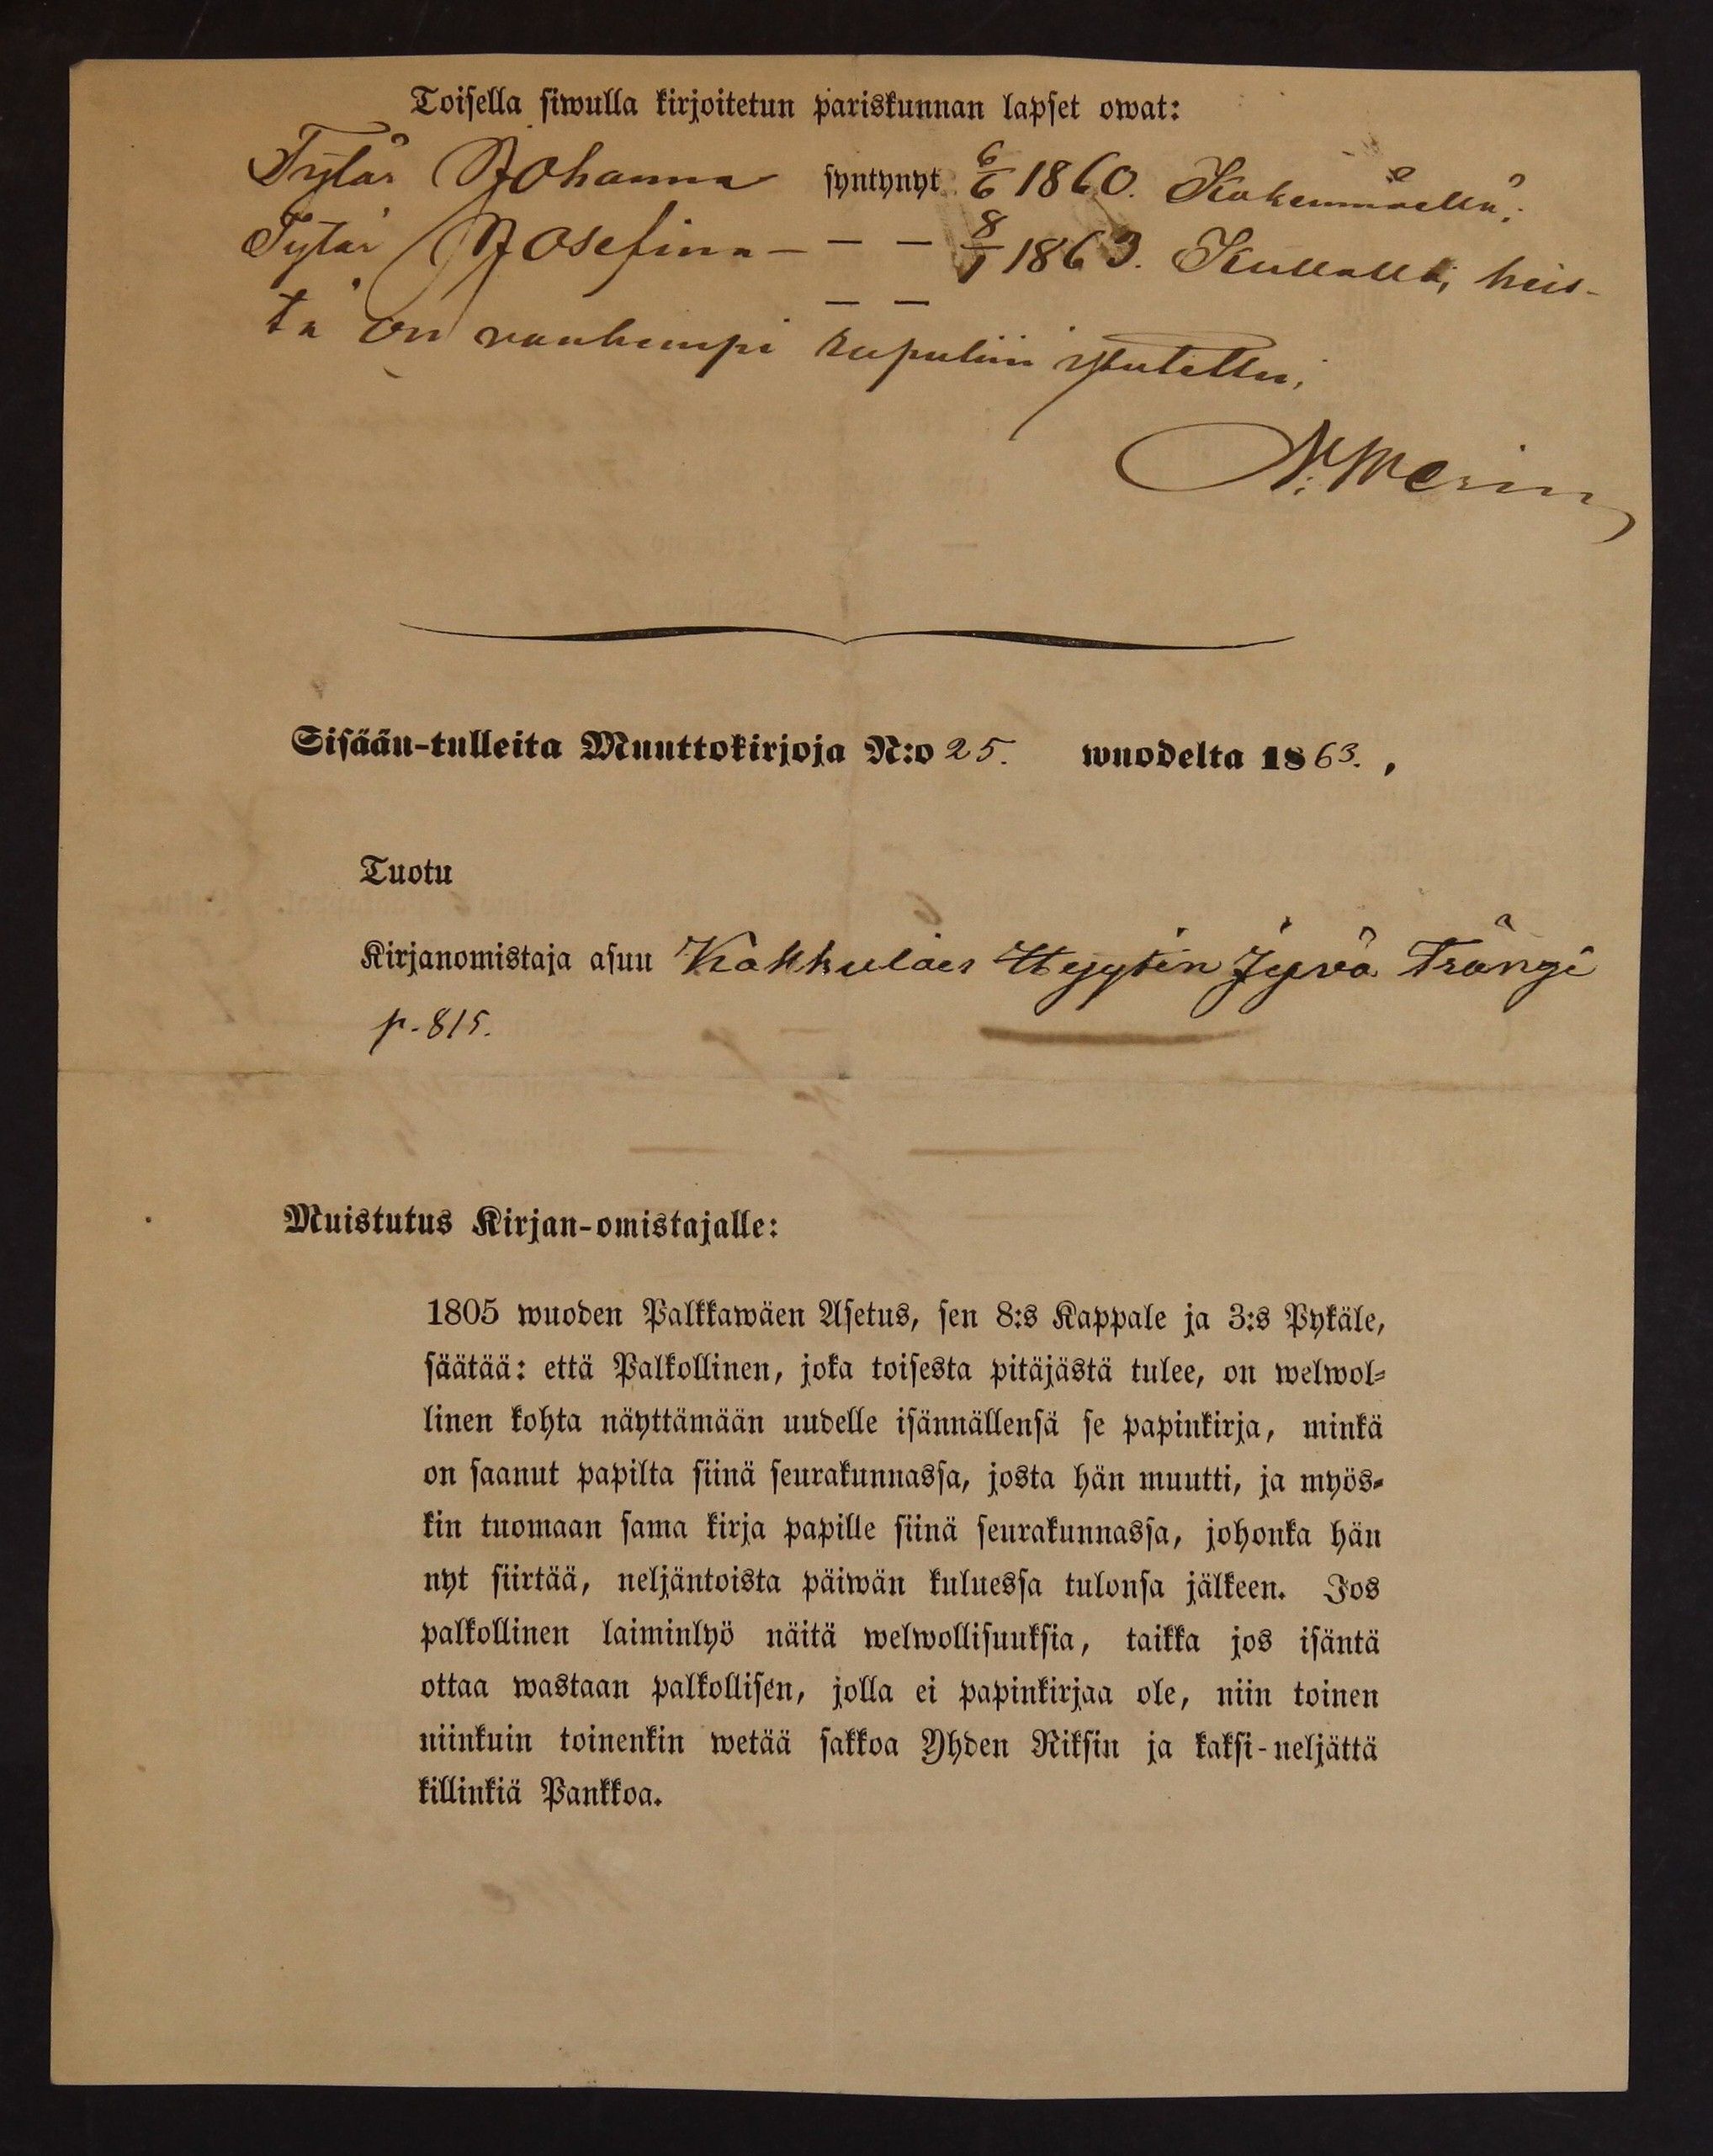 Toisella siwulla kirjoitetun pariskunnan lapset owat:
Tytär Johanna syntynyt 6/6 1860. Kokemäellä;
Tytär Josefina – – – 8/1 1863. Kullalla; heis-
– –
tä on vanhempi rupuliin istutettu;
Sisään-tulleita Muuttokirjoja N:o 25. wuodelta 1863. ,
Tuotu
Kirjanomistaja asuu Trängi
p. 815.
Muistutus Kirjan-omistajalle:
1805 wuoden Palkkawäen Asetus, sen 8:s Kappale ja 3:s Pykäle,
säätää: että Palkollinen, joka toisesta pitäjästä tulee, on welwol-
linen kohta näyttämään uudelle isännällensä se papinkirja, minkä
on saanut papilta siinä seurakunnassa, josta hän muutti, ja myös-
kin tuomaan sama kirja papille siinä seurakunnassa, johonka hän
nyt siirtää, neljäntoista päiwän kuluessa tulonsa jälkeen. Jos
palkollinen laiminlyö näitä welwollisuuksia, taikka jos isäntä
ottaa wastaan palkollisen, jolla ei papinkirjaa ole, niin toinen
niinkuin toinenkin wetää sakkoa Yhden Riksin ja kaksi-neljättä
killinkiä Pankkoa.